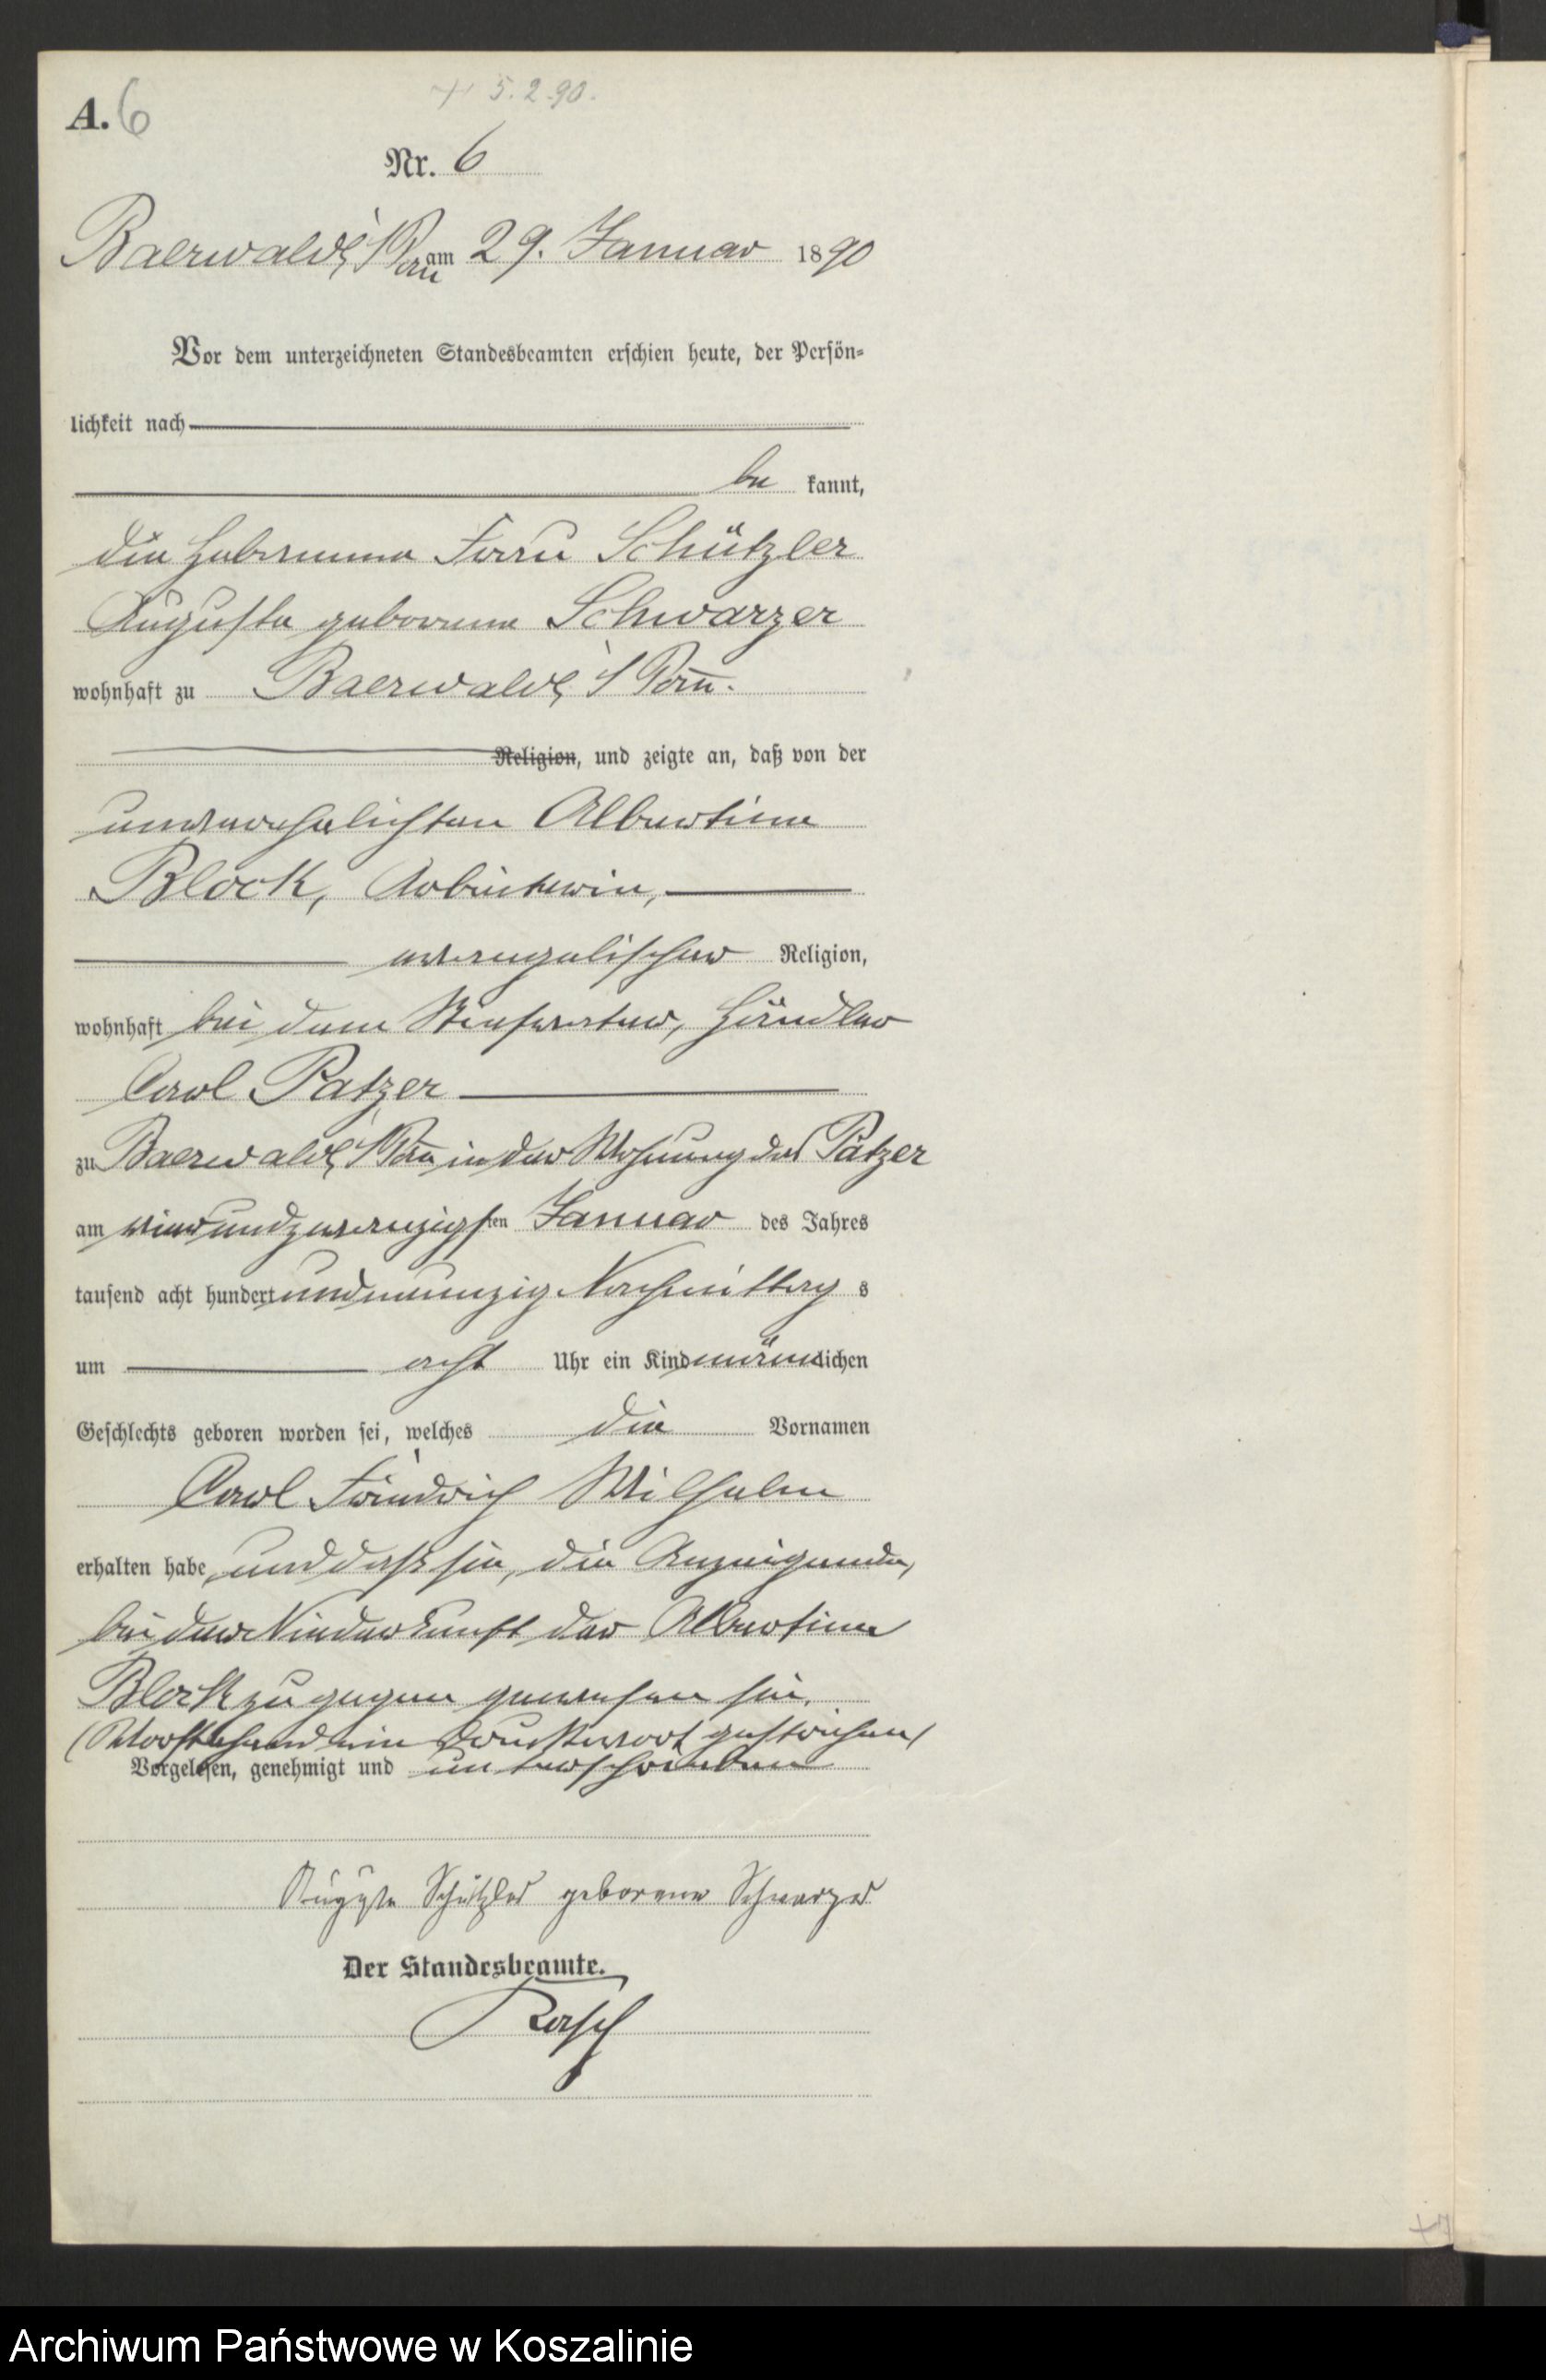 + 5.2.90.
A. 6
Nr. 6
Baerwalde i/Pom am 29. Januar 1890
Vor dem unterzeichneten Standesbeamten erschien heute, der Persön-
lichkeit nach
be kannt,
die Hebamme Frau Schützler
Auguste geborene Schwarzer
wohnhaft zu Baerwalde i/Pom.
Religion, und zeigte an, daß von der
unverehelichten Albertine
Block, Arbeiterin,
evangelischer Religion,
wohnhaft bei dem Händler
Carl Patzer
zu Baerwalde i/Pom in der Wohnung des Patzer
am vierundzwanzigsten Januar des Jahres
tausend acht hundert undneunzig Nachmittag s
um acht Uhr ein Kind männlichen
Geschlechts geboren worden sei, welches die Vornamen
Carl Friedrich Wilhelm
erhalten habe, und daß sie, die Anzeigende,
bei der Niederkunft der Albertine
Block zugegen gewesen sei.
(Vorstehend ein Druckwort gestrichen)
Vorgelesen, genehmigt und unterschrieben
Auguste Schützler geborene Schwarzer
Der Standesbeamte.
Rasch
Archiwum Państwowe w Koszalinie